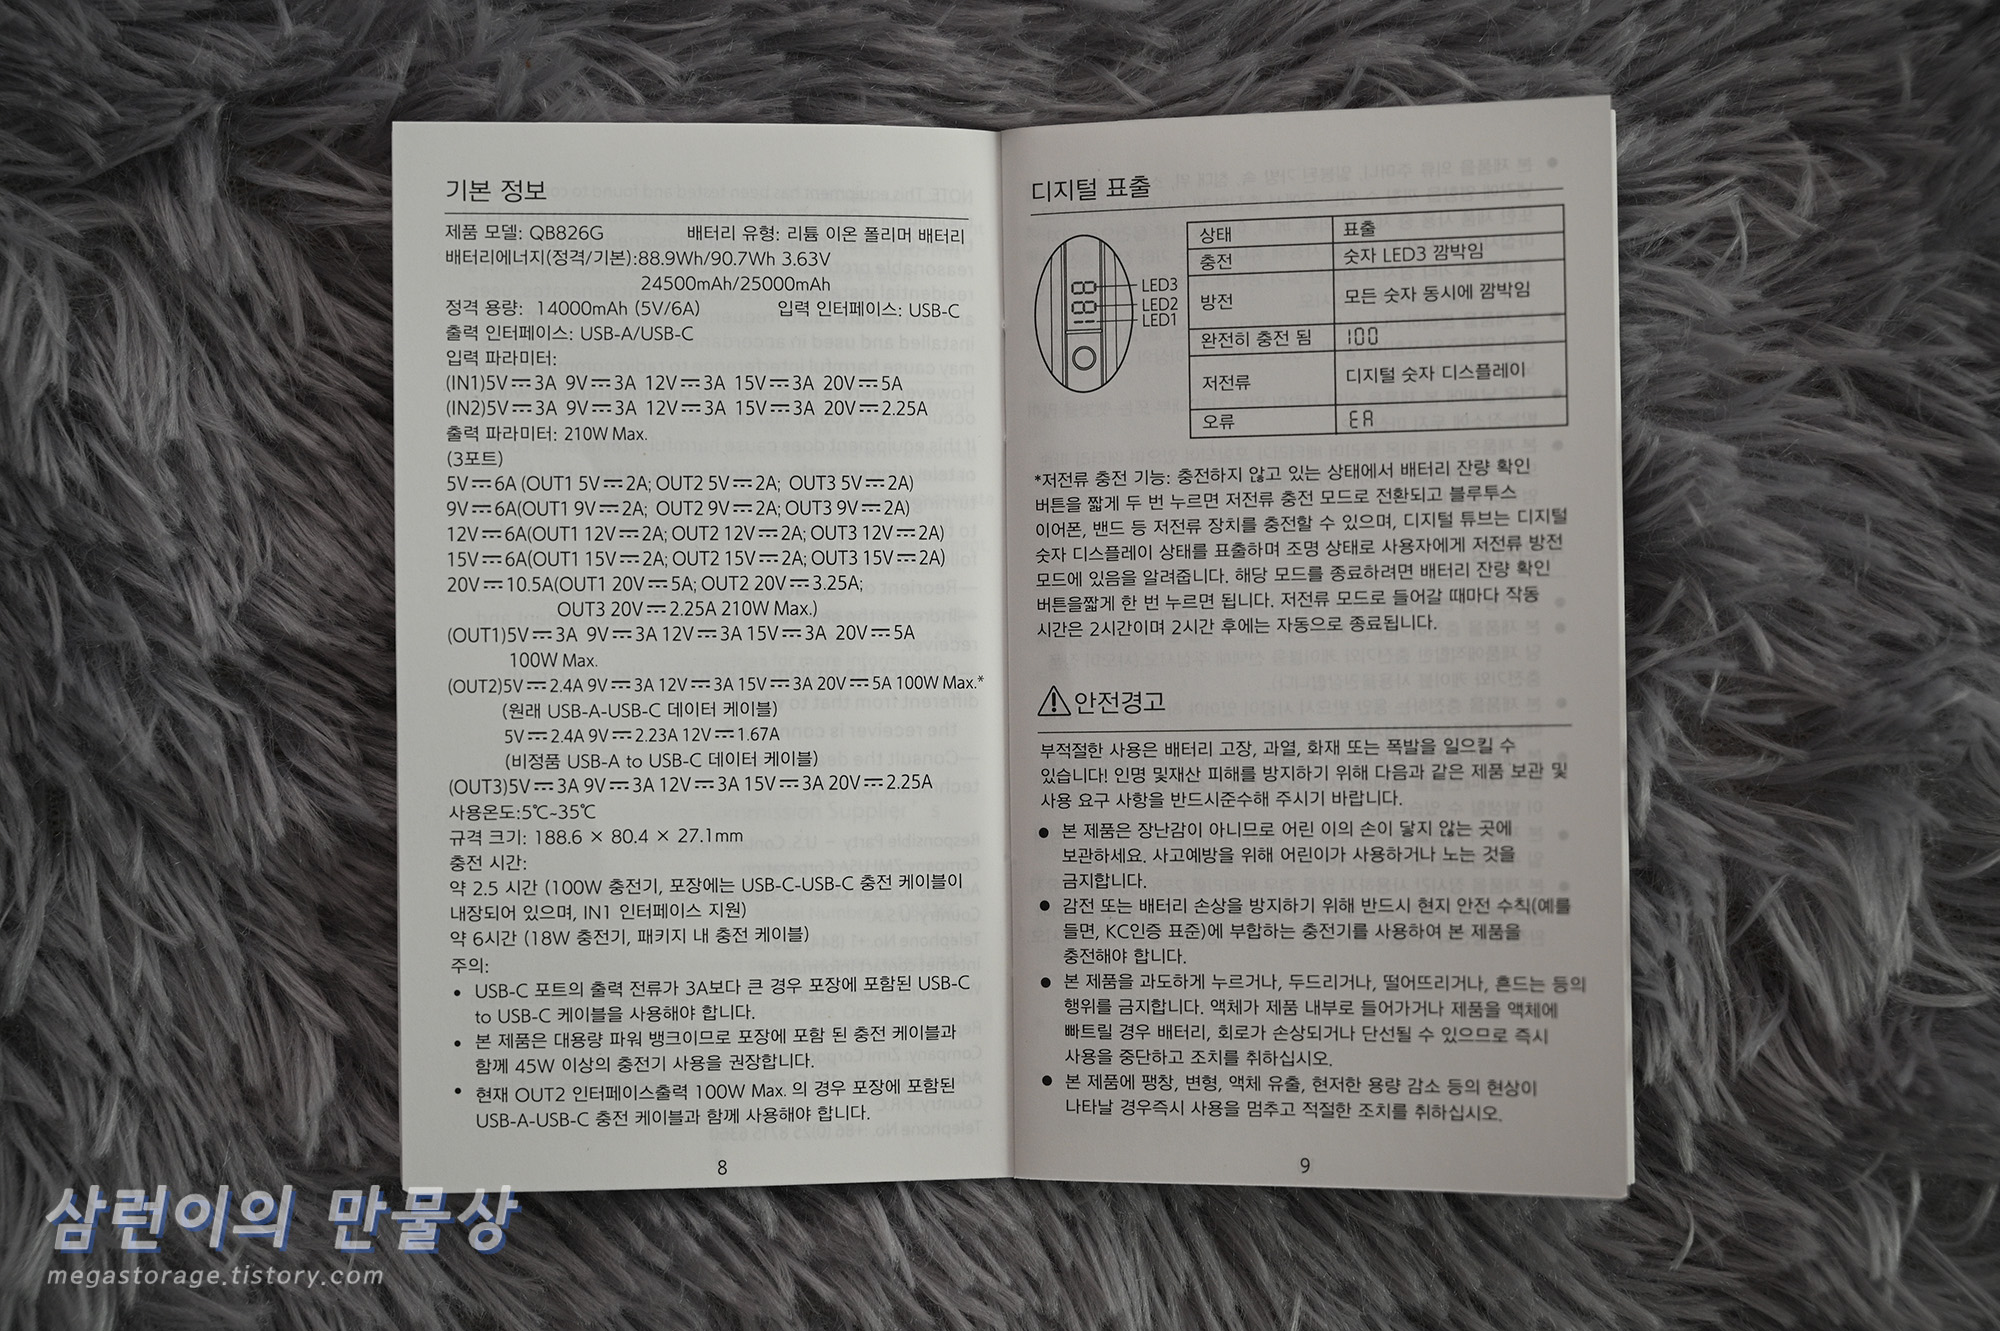 기본 정보
제품 모델: QB826G 배터리 유형: 리튬 이온 폴리머 배터리
배터리에너지(정격/기본):88.9Wh/90.7Wh 3.63V
24500mAh/25000mAh
정격 용량: 14000mAh (5V/6A) 입력 인터페이스: USB-C
출력 인터페이스: USB-A/USB-C
입력 파라미터:
(IN1)5V⎓3A 9V⎓3A 12V⎓3A 15V⎓3A 20V⎓5A
(IN2)5V⎓3A 9V⎓3A 12V⎓3A 15V⎓3A 20V⎓2.25A
출력 파라미터: 210W Max.
(3포트)
5V⎓6A (OUT1 5V⎓2A; OUT2 5V⎓2A; OUT3 5V⎓2A)
9V⎓6A(OUT1 9V⎓2A; OUT2 9V⎓2A; OUT3 9V⎓2A)
12V⎓6A(OUT1 12V⎓2A; OUT2 12V⎓2A; OUT3 12V⎓2A)
15V⎓6A(OUT1 15V⎓2A; OUT2 15V⎓2A; OUT3 15V⎓2A)
20V⎓10.5A(OUT1 20V⎓5A; OUT2 20V⎓3.25A;
OUT3 20V⎓2.25A 210W Max.)
(OUT1)5V⎓3A 9V⎓3A 12V⎓3A 15V⎓3A 20V⎓5A
100W Max.
(OUT2)5V⎓2.4A 9V⎓3A 12V⎓3A 15V⎓3A 20V⎓5A 100W Max.*
(원래 USB-A-USB-C 데이터 케이블)
5V⎓2.4A 9V⎓2.23A 12V⎓1.67A
(비정품 USB-A to USB-C 데이터 케이블)
(OUT3)5V⎓3A 9V⎓3A 12V⎓3A 15V⎓3A 20V⎓2.25A
사용온도:5℃~35℃
규격 크기: 188.6 × 80.4 × 27.1mm
충전 시간:
약 2.5 시간 (100W 충전기, 포장에는 USB-C-USB-C 충전 케이블이
내장되어 있으며, IN1 인터페이스 지원)
약 6시간 (18W 충전기, 패키지 내 충전 케이블)
주의:
• USB-C 포트의 출력 전류가 3A보다 큰 경우 포장에 포함된 USB-C
to USB-C 케이블을 사용해야 합니다.
• 본 제품은 대용량 파워 뱅크이므로 포장에 포함 된 충전 케이블과
함께 45W 이상의 충전기 사용을 권장합니다.
• 현재 OUT2 인터페이스출력 100W Max. 의 경우 포장에 포함된
USB-A-USB-C 충전 케이블과 함께 사용해야 합니다.
8
디지털 표출
LED3
LED2
LED1
상태 표출
충전 숫자 LED3 깜박임
방전 모든 숫자 동시에 깜박임
완전히 충전 됨 100
저전류 디지털 숫자 디스플레이
오류 EA
*저전류 충전 기능: 충전하지 않고 있는 상태에서 배터리 잔량 확인
버튼을 짧게 두 번 누르면 저전류 충전 모드로 전환되고 블루투스
이어폰, 밴드 등 저전류 장치를 충전할 수 있으며, 디지털 튜브는 디지털
숫자 디스플레이 상태를 표출하며 조명 상태로 사용자에게 저전류 방전
모드에 있음을 알려줍니다. 해당 모드를 종료하려면 배터리 잔량 확인
버튼을짧게 한 번 누르면 됩니다. 저전류 모드로 들어갈 때마다 작동
시간은 2시간이며 2시간 후에는 자동으로 종료됩니다.
안전경고
부적절한 사용은 배터리 고장, 과열, 화재 또는 폭발을 일으킬 수
있습니다! 인명 및재산 피해를 방지하기 위해 다음과 같은 제품 보관 및
사용 요구 사항을 반드시준수해 주시기 바랍니다.
● 본 제품은 장난감이 아니므로 어린 이의 손이 닿지 않는 곳에
보관하세요. 사고예방을 위해 어린이가 사용하거나 노는 것을
금지합니다.
● 감전 또는 배터리 손상을 방지하기 위해 반드시 현지 안전 수칙(예를
들면, KC인증 표준)에 부합하는 충전기를 사용하여 본 제품을
충전해야 합니다.
● 본 제품을 과도하게 누르거나, 두드리거나, 떨어뜨리거나, 흔드는 등의
행위를 금지합니다. 액체가 제품 내부로 들어가거나 제품을 액체에
빠트릴 경우 배터리, 회로가 손상되거나 단선될 수 있으므로 즉시
사용을 중단하고 조치를 취하십시오.
● 본 제품에 팽창, 변형, 액체 유출, 현저한 용량 감소 등의 현상이
나타날 경우즉시 사용을 멈추고 적절한 조치를 취하십시오.
9
삼런이의 만물상
megastorage.tistory.com